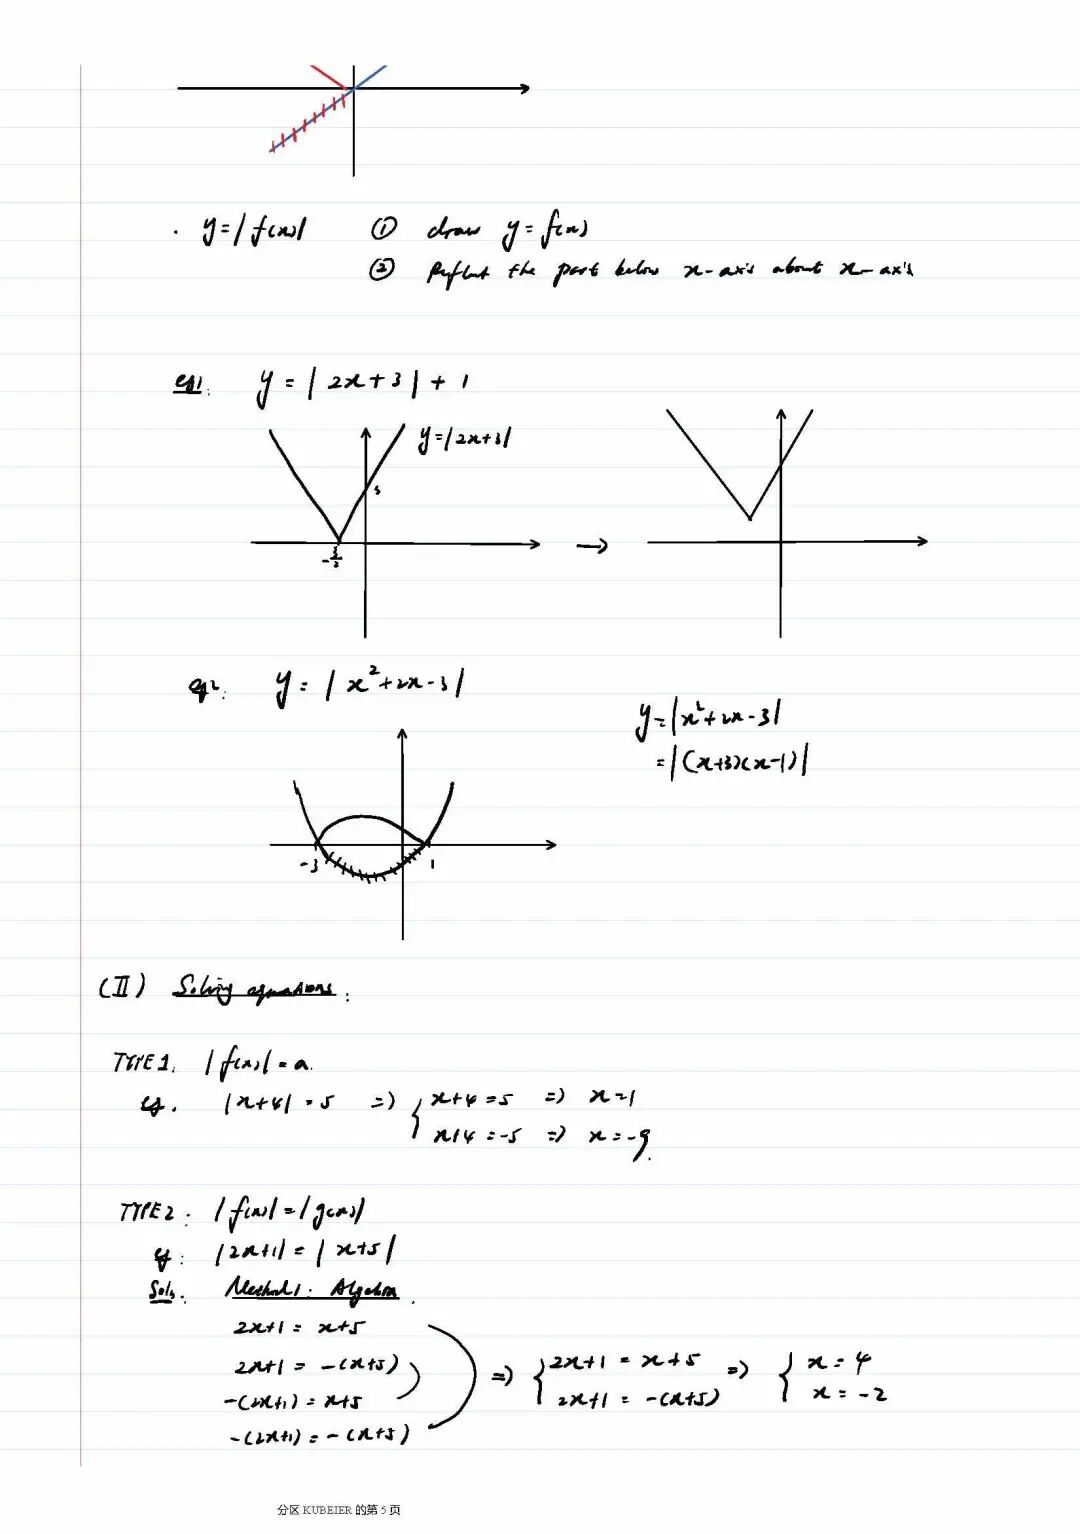 · y=|f(x)| ① draw y=f(x)
② Reflect the part below x-axis about x-axis
eg1. y = |2x+3| + 1
y=|2x+3|
3
-3/2
eg2. y = |x²+2x-3|
y=|x²+2x-3|
=|(x+3)(x-1)|
-3 1
(II) Solving equations:
TYPE1. |f(x)|=a.
eg. |x+4|=5 => { x+4=5 => x=1
x+4=-5 => x=-9.
TYPE2: |f(x)|=|g(x)|
eg: |2x+1|=|x+5|
Soln. Method1: Algebra.
2x+1=x+5
2x+1=-(x+5) => { 2x+1=x+5 => { x=4
-(2x+1)=x+5 2x+1=-(x+5) x=-2
-(2x+1)=-(x+5)
分区 KUBEIER 的第 5 页